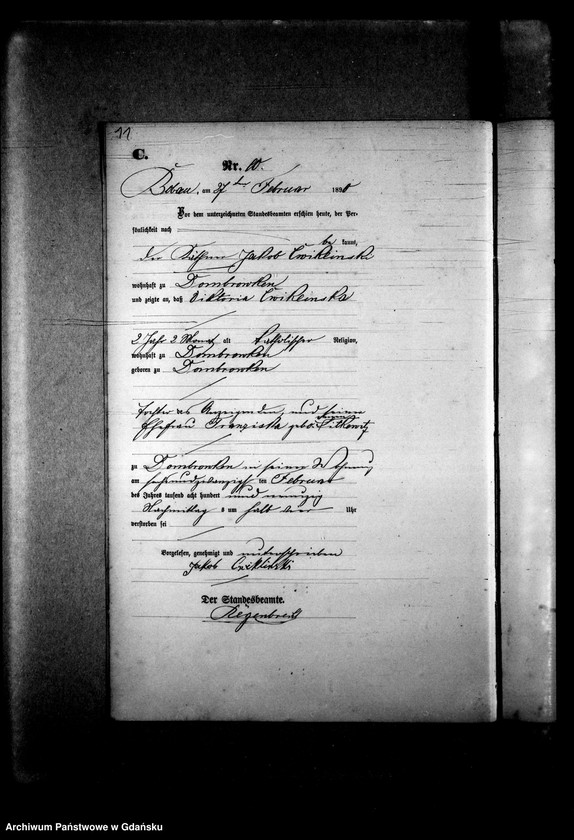 11
C.
Nr. 10.
Bobau, am 27ten Februar 1890
Vor dem unterzeichneten Standesbeamten erschien heute, der Per-
sönlichkeit nach
be kannt,
der Käthner Jakob Cwiklinski
wohnhaft zu Dombrowken
und zeigte an, daß Viktoria Cwiklinska
2 Jahr 2 Monat alt katholischer Religion,
wohnhaft zu Dombrowken
geboren zu Dombrowken
Tochter des Anzeigenden, und seiner
Ehefrau Franziska geb.
zu Dombrowken in seiner Wohnung
am sechsundzwanzigsten ten Februar
des Jahres tausend acht hundert und neunzig
Nachmittag s um halb vier Uhr
verstorben sei
Vorgelesen, genehmigt und unterschrieben
Jakob Cwiklinski
Der Standesbeamte.
Archiwum Państwowe w Gdańsku